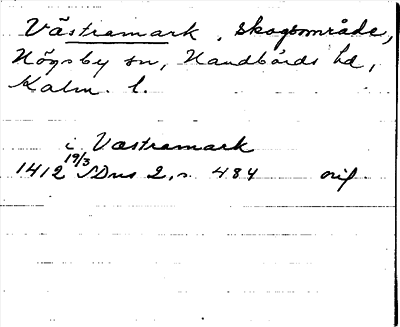 Västramark, skogsområde,
Högsby sn, Handbörds hd,
Kalm. l.
i Vastramark
1412 19/3 SDns 2, s. 484 orig.